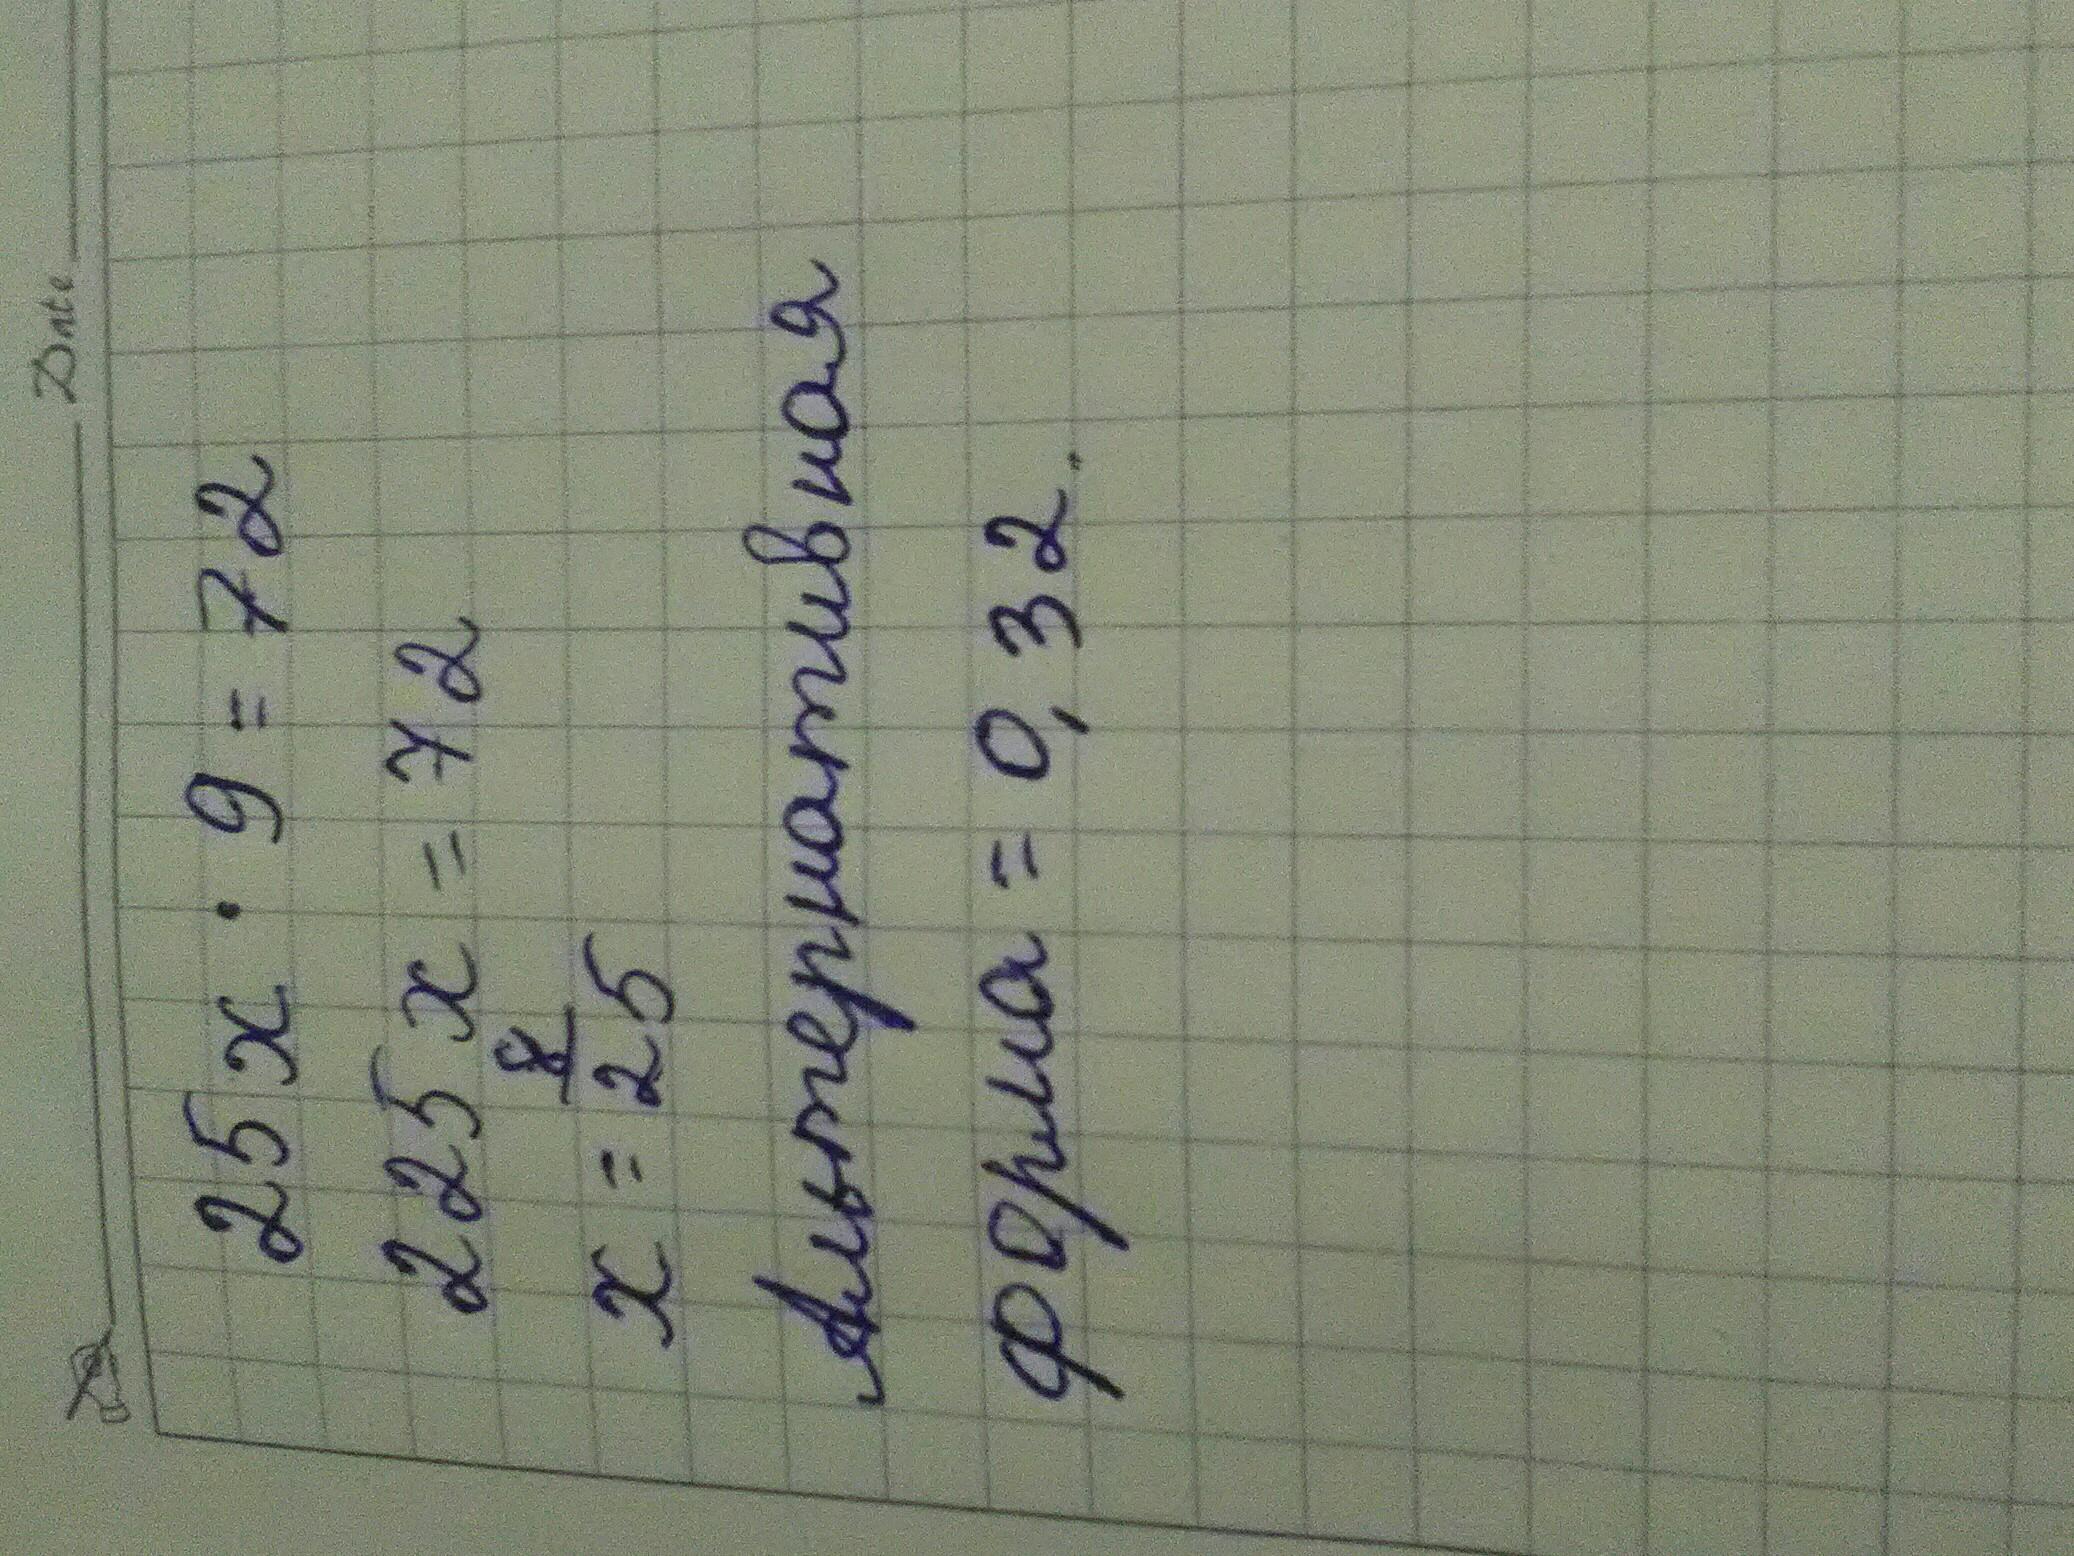 Date
25x · 9 = 72
225x = 72
x = 8/25
Альтернативная
форма = 0,32.